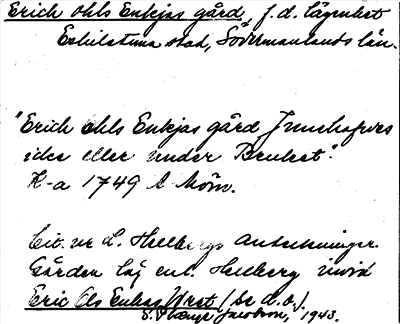 Erich Ohls Enkjas gård, f.d. lägenhet
Eskilstuna stad, Södermanlands län.
"Erich Ohls Enkjas gård
eller under Bruket".
K-a 1749 A Mörn.
Cit. ur L. Hellbergs anteckningar.
Gården låg enl. Hellberg invid
Eric Ols Enkas Wret (se d.o.).
S. Jacobson, 1943.